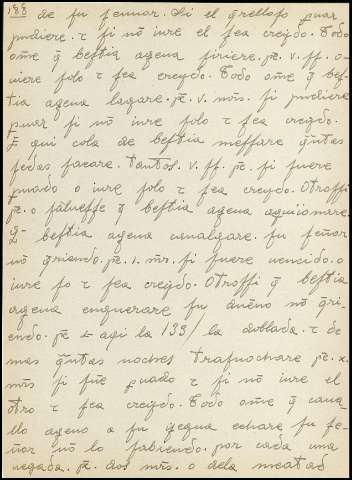 188 de su sennor. Si el q̃relloso puar
pudiere. τ si nõ iure el sea creydo. Todo
om̃e q̃ bestia agena firiere. p̃e. v. ss. o
iure solo τ sea creydo. Todo om̃e q̃ bes-
tia agena lagare. p̃e. v. mr̃s. si pudiere
puar si nõ iure solo τ sea creydo.
E qui cola de bestia messare q̃ntas
sedas sacare. tantos. v. ss. p̃e. si fuere
puado o iure solo τ sea creydo. Otrossi
p̃e. o
bestia agena caualgare. su señor
nõ q̃riendo. p̃e. 1. mr̃. si fuere uencido. o
iure so τ sea creydo. Otrossi q̃ bestia
agena enguerare su dueno nõ q̃ri-
endo. p̃e aqi la 133/ la doblada. τ de
mas q̃ntas noches trasnochare p̃e. x.
mr̃s si fue puado τ si nõ iure el
otro τ sea creydo. Todo om̃e q̃ caua-
llo ageno a su yegua echare su se-
ñor nõ lo sabiendo. por cada una
uegada. p̃e. dos mr̃s. o dela meatad